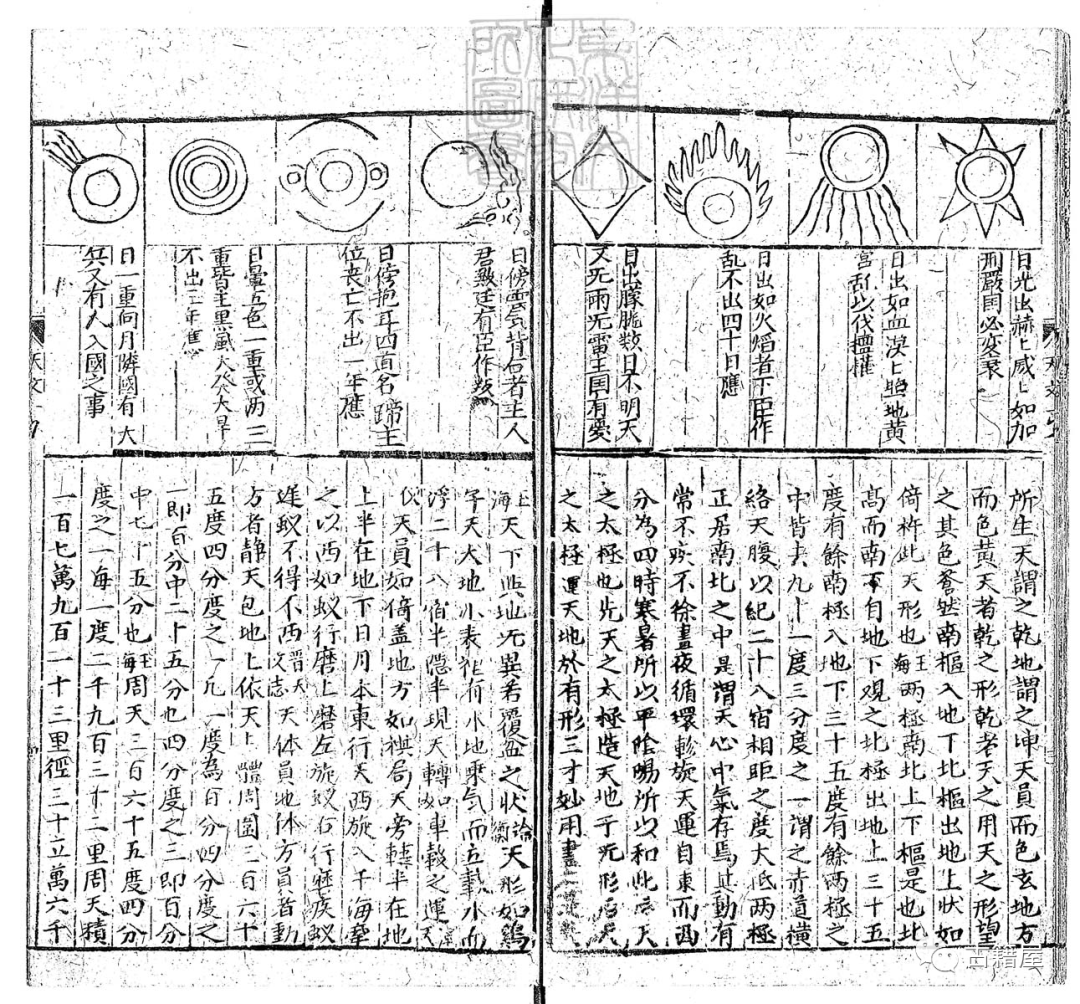 日光出赫上咸上如加
刑嚴国必変衆
日出如血漠上照地黄
宫乱以伐擅權
日出如火焰者下臣作
乱不出四十日應
日出朦朧数日不明天
又旡雨旡雷王国有憂
日傍雲気背右者主人
君数廷有臣作叛
日傍抱耳四面名蹄主
位丧亡不出一年應
日暈五色一重或两三
重皆主黑風大發大旱
不出三年應
日一重向月隣國有大
兵又有人入國之事
所生天謂之乾地謂之坤天員而色玄地方
而色黄天者乾之形乾者天之用天之形望
之其色蒼然南樞入地下北樞出地上状如
倚杵此天形也王海两極南北上下樞是也北
高而南下自地下观之北極出地上三十五
度有餘南極入地下三十五度有餘两極之
中皆去九十一度三分度之一謂之赤道横
絡天腹以紀二十八宿相距之度大低两極
正居南北之中是謂天心中氣存焉其動有
常不疾不徐晝夜循環軫旋天運自東而西
分為四時寒暑所以平陰陽所以和此后天
之太極也先天之太極造天地于旡形后天
之太極運天地於有形三才妙用盡
王海天下與地旡異若覆盆之状論衡天形如鷄
子天大地小表裡有水地乘气而立載水而
浮二十八宿半隐半現天轉如車轂之運
天員如倚盖地方如棋局天旁轉半在地
上半在地下日月本東行天西旋入于海牽
之以西如蚁行磨上磨左旋蚁右行磨疾蚁
遅蚁不得不西晋天文志天体員地体方員者動
方者静天包地上依天上體周圍三百六十
五度四分度之一凡一度為百分四分度之
一即百分中二十五分也四分度之三即百分
中七十五分也王海周天三百六十五度四分
度之一每一度二千九百三十二里周天積
一百七萬九百一十三里徑三十五萬六千
天文
古籍屋